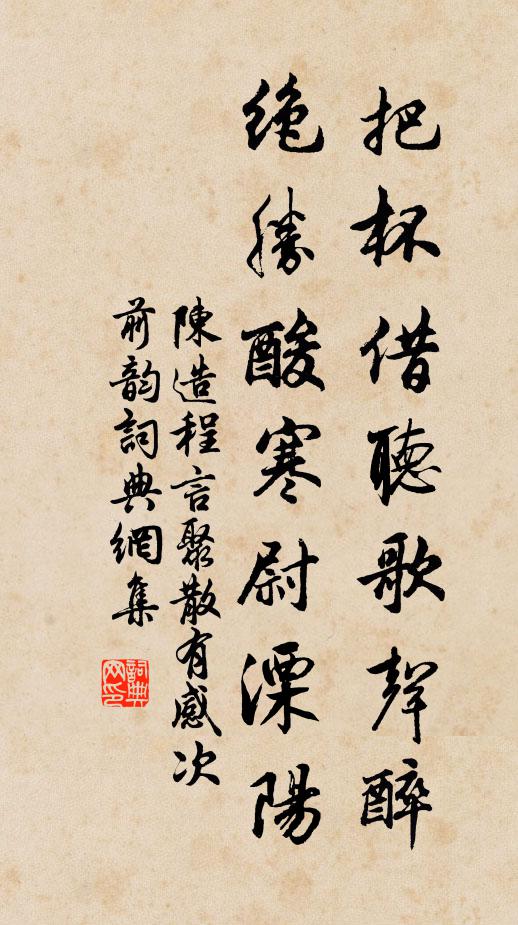 把杯借聽歌聲醉
絶勝酸寒尉溧陽
陳造程言聚散有感次
前韵詞典網集
詞典網印